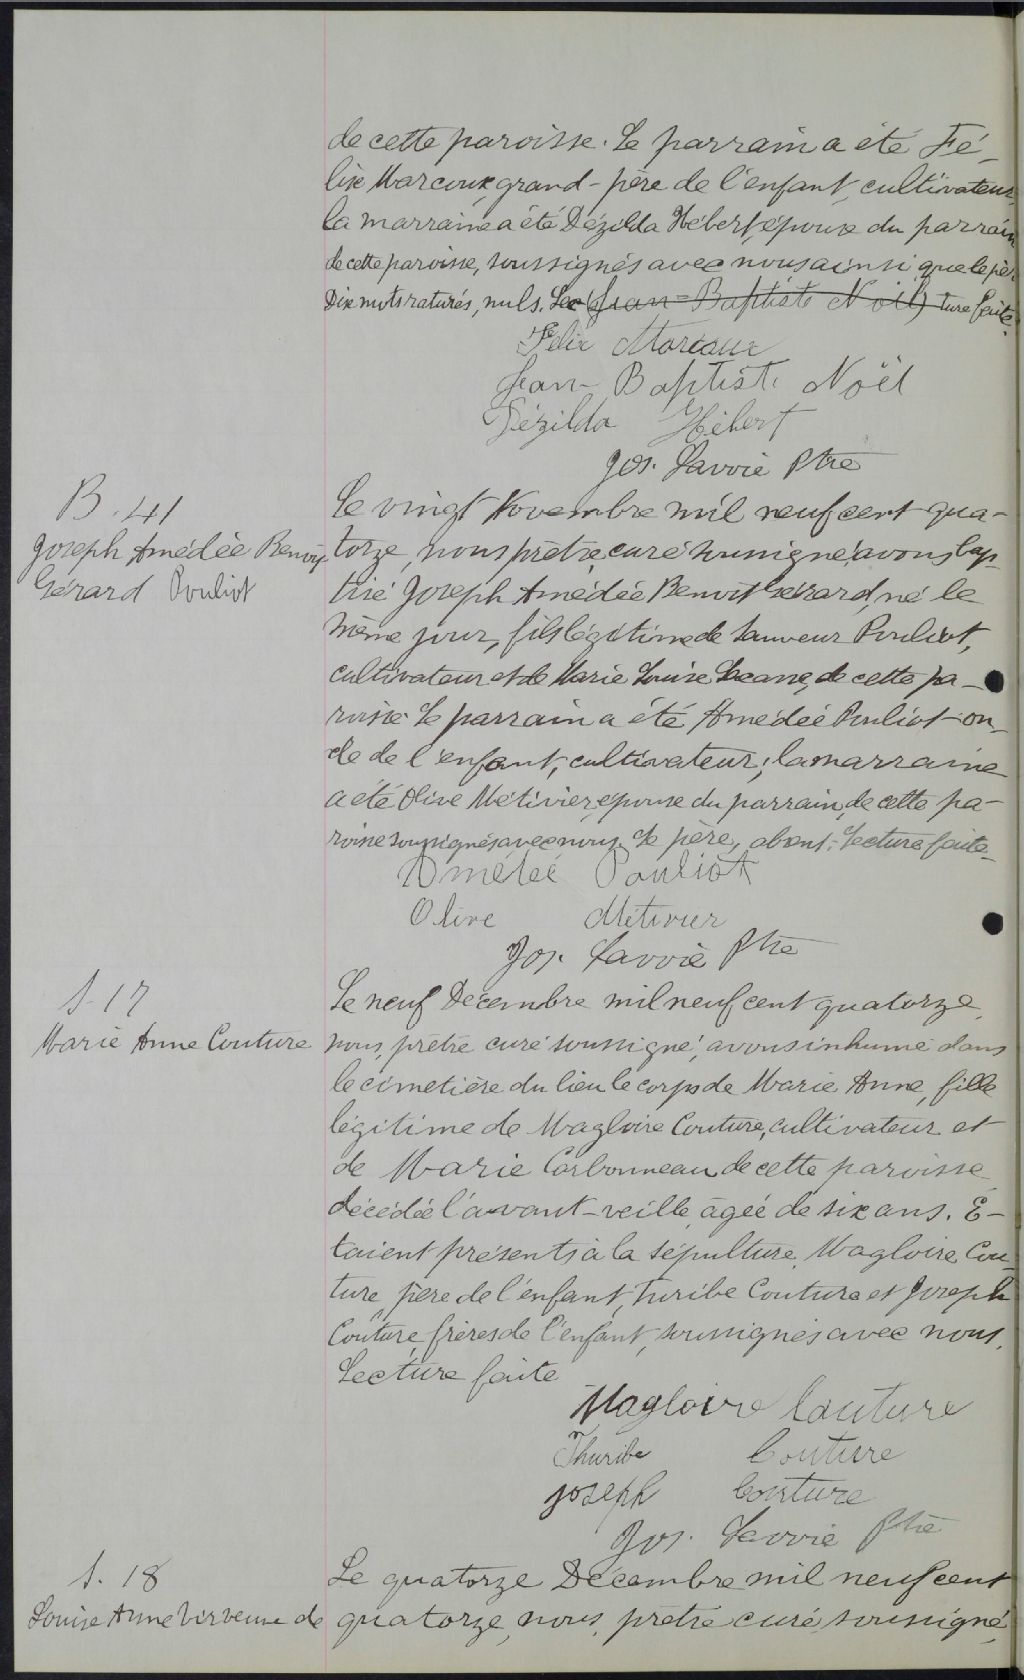 de cette paroisse. Le parrain a été Fé-
lix Marcoux, grand-père de l'enfant, cultivateur,
la marraine a été Dézilda Hébert, épouse du parrain
de cette paroisse, soussignés avec nous ainsi que le père
Dix mots raturés, nuls. Lec (Jean-Baptiste Noël) ture faite.
Felix Marcoux
Jean-Baptiste Noël
Dézilda Hébert
Jos. Lavoie Ptre
B. 41
Joseph Amédée Benoit
Gérard Pouliot
Le vingt Novembre mil neuf cent qua-
torze, nous prêtre, curé soussigné, avons bap-
tisé Joseph Amédée Benoit Gérard, né le
même jour, fils légitime de Sauveur Pouliot,
cultivateur et de Marie Louise de cette pa-
roisse. Le parrain a été Amédée Pouliot on-
cle de l'enfant, cultivateur; la marraine
a été Olive Métivier, épouse du parrain, de cette pa-
roisse soussignés avec nous. Le père, absent. Lecture faite.
Amédée Pouliot
Olive Métivier
Jos. Lavoie Ptre
S. 17
Marie Anne Couture
Le neuf Décembre mil neuf cent quatorze,
nous, prêtre curé soussigné, avons inhumé dans
le cimetière du lieu le corps de Marie Anne, fille
légitime de Magloire Couture, cultivateur et
de Marie Carbonneau de cette paroisse
décédée l'avant-veille, âgée de six ans. É-
taient présents à la sépulture, Magloire Cou-
ture, père de l'enfant, Turibe Couture et Joseph
Couture, frères de l'enfant, soussignés avec nous.
Lecture faite
Magloire Couture
Thuribe Couture
joseph Couture
Jos. Lavoie Ptre
S. 18
Louise Anne de
Le quatorze Décembre mil neuf cent
quatorze, nous, prêtre curé soussigné,